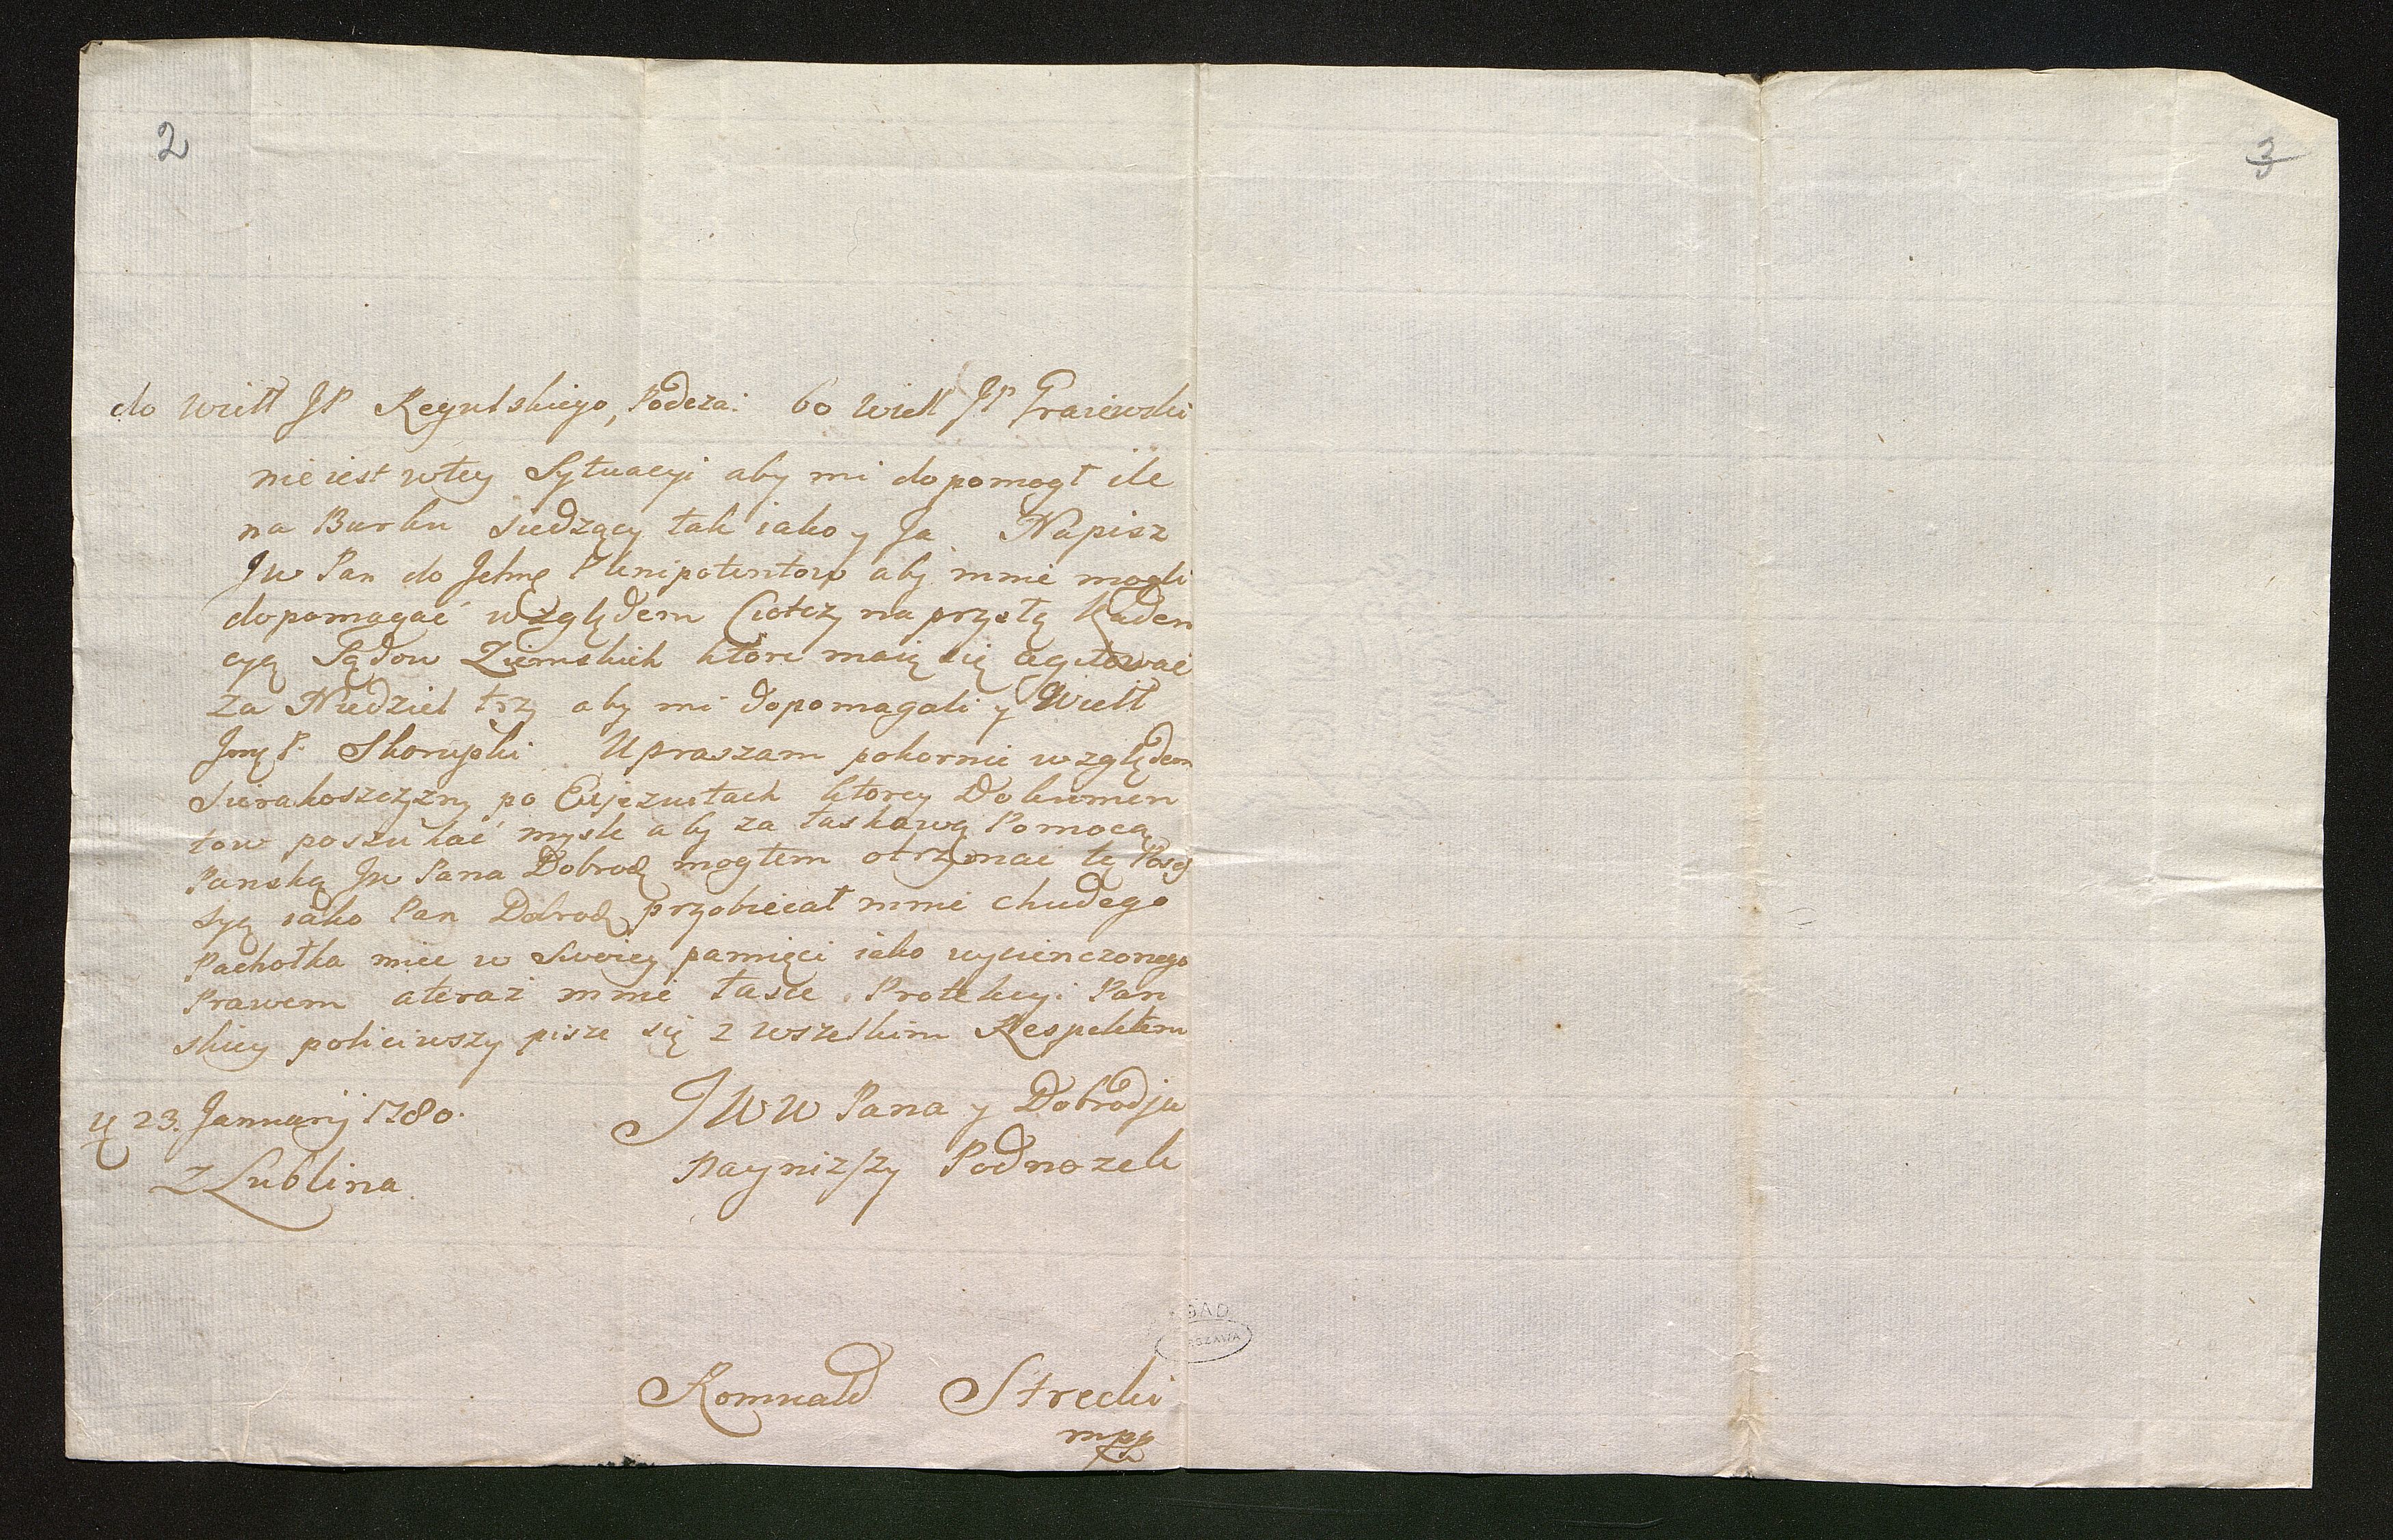 2
3
do Wiell JP Regulskiego, Podcza: bo Wiell JP Graiewski
nie iest wtey Sytuacyi aby mi dopomogł ile
na Burku siedzący tak iako y Ja Napisz
Jw Pan do Ichmę Plenipotentow aby mnie mogli
dopomagać względem Ciotczy na przyszłą Kaden
cyą Sądow Ziemskich ktore maią się agitować
za Niedziel trzy aby mi dopomagali y Wiell
Jmę P. Skorupski Upraszam pokornie względem
Sierakoszczyzny po Exjezuitach ktorey Dokumen
tow poszukać mysle aby za łaskawą Pomocą
Panską Jw Pana Dobrodz mogłem otrzymać tę Poses
syą iako Pan Dobrodz przobiecał mnie chudego
Pachołka miec w Swoiey pamięci iako wycienczonego
Prawem a teraz mnie łasce Protekcyi Pan
skiey poliiciwszy pisze się z wszelkim Respektem
23. Januarij 1780.
Z Lublina.
J W W Pana y Dobrodzju
Nayniższy Podnozek
Romuald Strecki
mpp
WARSZAWA